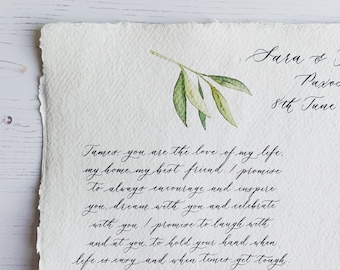 Sara &
Paxos
8th June
James, you are the love of my life,
my home, my best friend. I promise
to always encourage and inspire
you, dream with you and celebrate
with you. I promise to laugh with
and at you, to hold your hand when
life is easy and when times get tough,